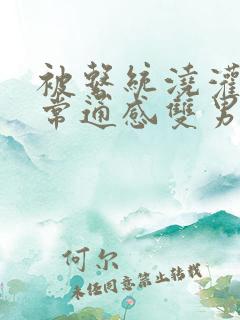 被繫統澆灌
常通感雙男
何尔
未经同意禁止转载